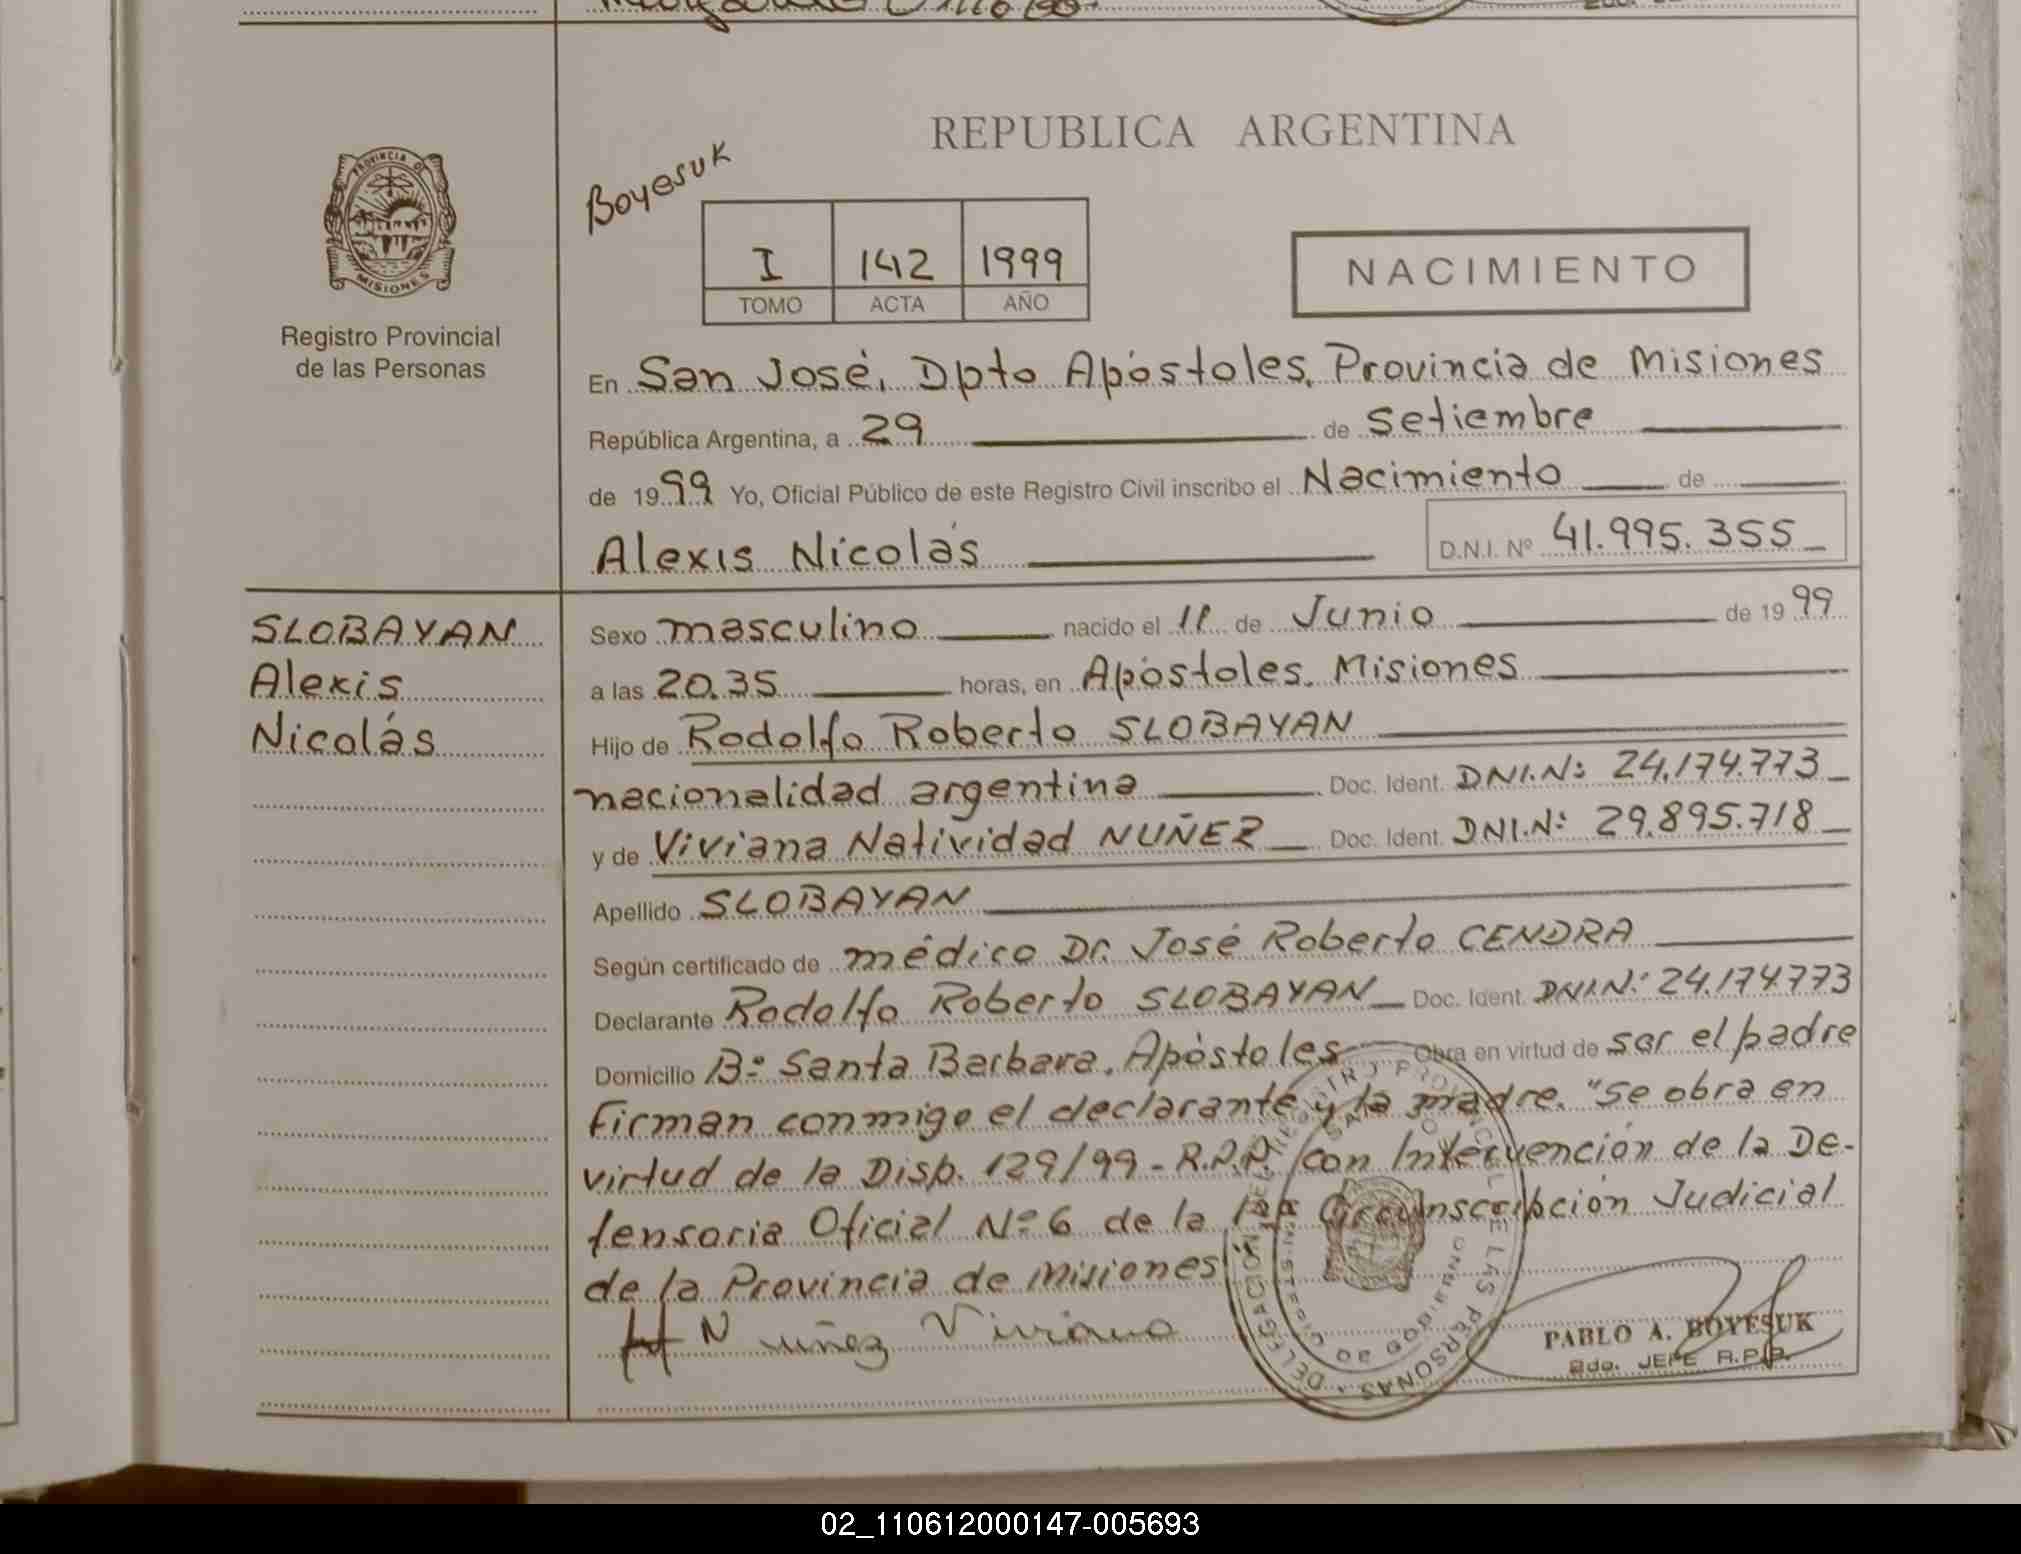 REPUBLICA ARGENTINA
Boyesuk
PROVINCIA DE
MISIONES
Registro Provincial
de las Personas
I 142 1999
TOMO ACTA AÑO
NACIMIENTO
En San José, Dpto Apóstoles, Provincia de Misiones
República Argentina, a 29 de Setiembre
de 1999 Yo, Oficial Público de este Registro Civil inscribo el Nacimiento de
Alexis Nicolás D.N.I. Nº 41.995.355
SLOBAYAN
Alexis
Nicolás
Sexo masculino nacido el 11 de Junio de 1999
a las 20.35 horas, en Apóstoles. Misiones
Hijo de Rodolfo Roberto SLOBAYAN
nacionalidad argentina Doc. Ident. DNI.Nº: 24.174.773
y de Viviana Natividad NUÑEZ Doc. Ident. DNI.Nº: 29.895.718
Apellido SLOBAYAN
Según certificado de médico Dr. José Roberto CENDRA
Declarante Rodolfo Roberto SLOBAYAN Doc. Ident. DNI.Nº: 24.174.773
Domicilio Bº Santa Barbara, Apóstoles Obra en virtud de ser el padre
Firman conmigo el declarante y la madre. "Se obra en
virtud de la Disp. 129/99 - R.P.P. con Intervención de la De-
fensoria Oficial Nº 6 de la 1ra Circunscripción Judicial
de la Provincia de Misiones
N Nuñez Viviana
PABLO A. BOYESUK
2do. JEFE R.P.P.
02_110612000147-005693